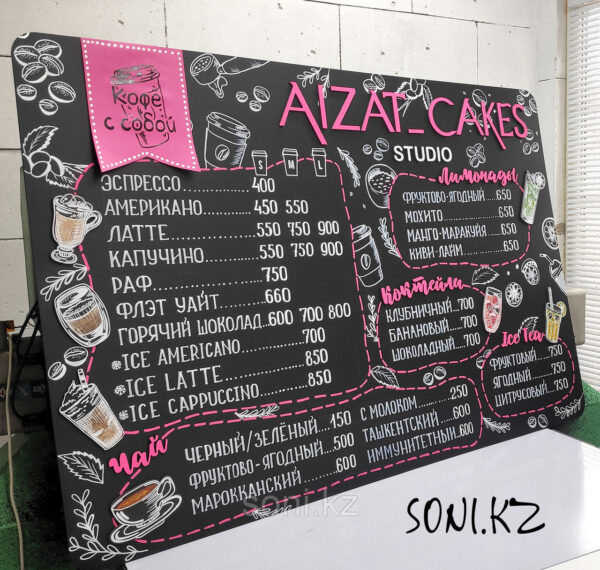 Кофе
с собой
AIZAT_CAKES
STUDIO
S M L
ЭСПРЕССО..............400
АМЕРИКАНО..........450 550
ЛАТТЕ....................550 750 900
КАПУЧИНО............550 750 900
РАФ......................750
ФЛЭТ УАЙТ..........660
ГОРЯЧИЙ ШОКОЛАД..600 700 800
*ICE AMERICANO..........700
*ICE LATTE....................850
*ICE CAPPUCCINO..........850
Лимонады
ФРУКТОВО-ЯГОДНЫЙ....650
МОХИТО....................650
МАНГО-МАРАКУЙЯ....650
КИВИ-ЛАЙМ..............650
Коктейли
КЛУБНИЧНЫЙ..700
БАНАНОВЫЙ....700
ШОКОЛАДНЫЙ..700
Ice Tea
ФРУКТОВЫЙ....750
ЯГОДНЫЙ........750
ЦИТРУСОВЫЙ..750
Чай
ЧЕРНЫЙ/ЗЕЛЁНЫЙ..150
ФРУКТОВО-ЯГОДНЫЙ..500
МАРОККАНСКИЙ..........600
С МОЛОКОМ..........250
ТАШКЕНТСКИЙ....600
ИММУНИТЕТНЫЙ..600
soni.kz
SONI.KZ